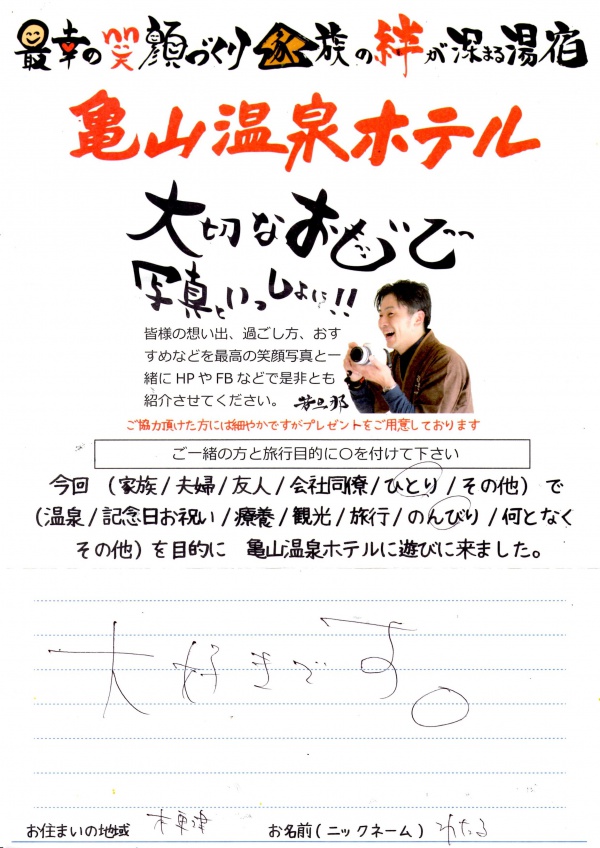 最幸の笑顔づくり 家族の絆が深まる湯宿
亀山温泉ホテル
大切なおもいで
写真といっしょに!!
皆様の想い出、過ごし方、おす
すめなどを最高の笑顔写真と一
緒にHPやFBなどで是非とも
紹介させてください。 若旦那
ご協力頂けた方には細やかですがプレゼントをご用意しております
ご一緒の方と旅行目的に〇を付けて下さい
今回 (家族/夫婦/友人/会社同僚/ひとり/その他) で
(温泉/記念日お祝い/療養/観光/旅行/のんびり/何となく
その他) を目的に 亀山温泉ホテルに遊びに来ました。
大好きです。
お住まいの地域 木更津 お名前(ニックネーム) わたる